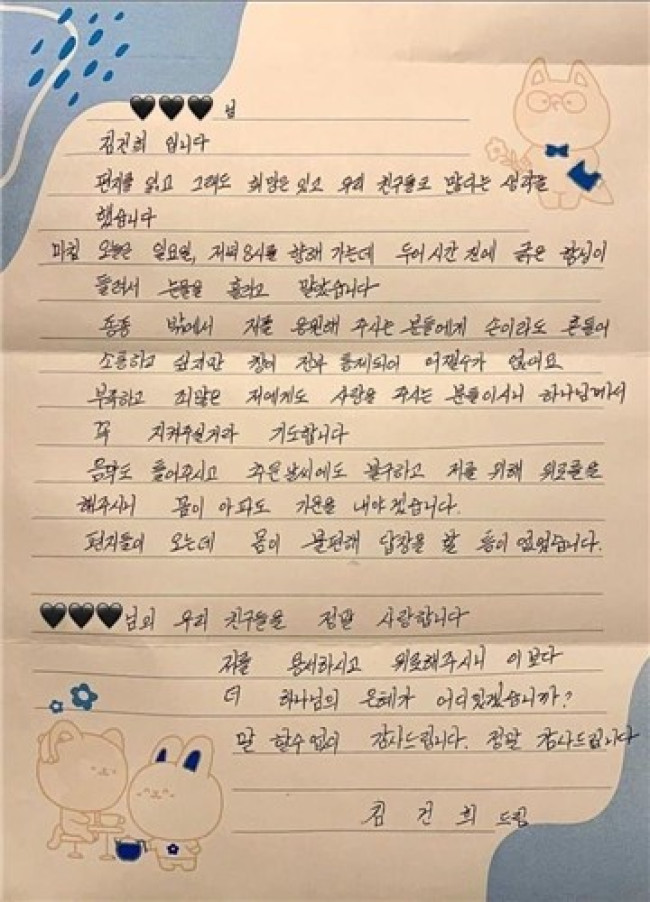 🖤🖤🖤님
김건희 입니다
편지를 읽고 그래도 희망은 있고 우리 친구들도 많다는 생각을
했습니다
마침 오늘은 일요일, 저녁 8시를 향해 가는데 두어시간 전에 굵은 함성이
들려서 눈물을 흘리고 말았습니다
종종 밖에서 저를 응원해 주시는 분들에게 손이라도 흔들어
소통하고 싶지만 창이 전부 통제되어 어쩔수가 없어요
부족하고 죄많은 저에게도 사랑을 주시는 분들이시니 하나님께서
꼭 지켜주실거라 기도합니다
음악도 틀어주시고 추운날씨에도 불구하고 저를 위해 위로들을
해주시니 몸이 아파도 기운을 내야겠습니다.
편지들이 오는데 몸이 불편해 답장을 할 통이 없었습니다.
🖤🖤🖤님의 우리 친구들을 정말 사랑합니다
저를 용서하시고 위로해주시니 이보다
더 하나님의 은혜가 어디있겠습니까?
말 할수없이 감사드립니다. 정말 감사드립니다
김 건 희 드림